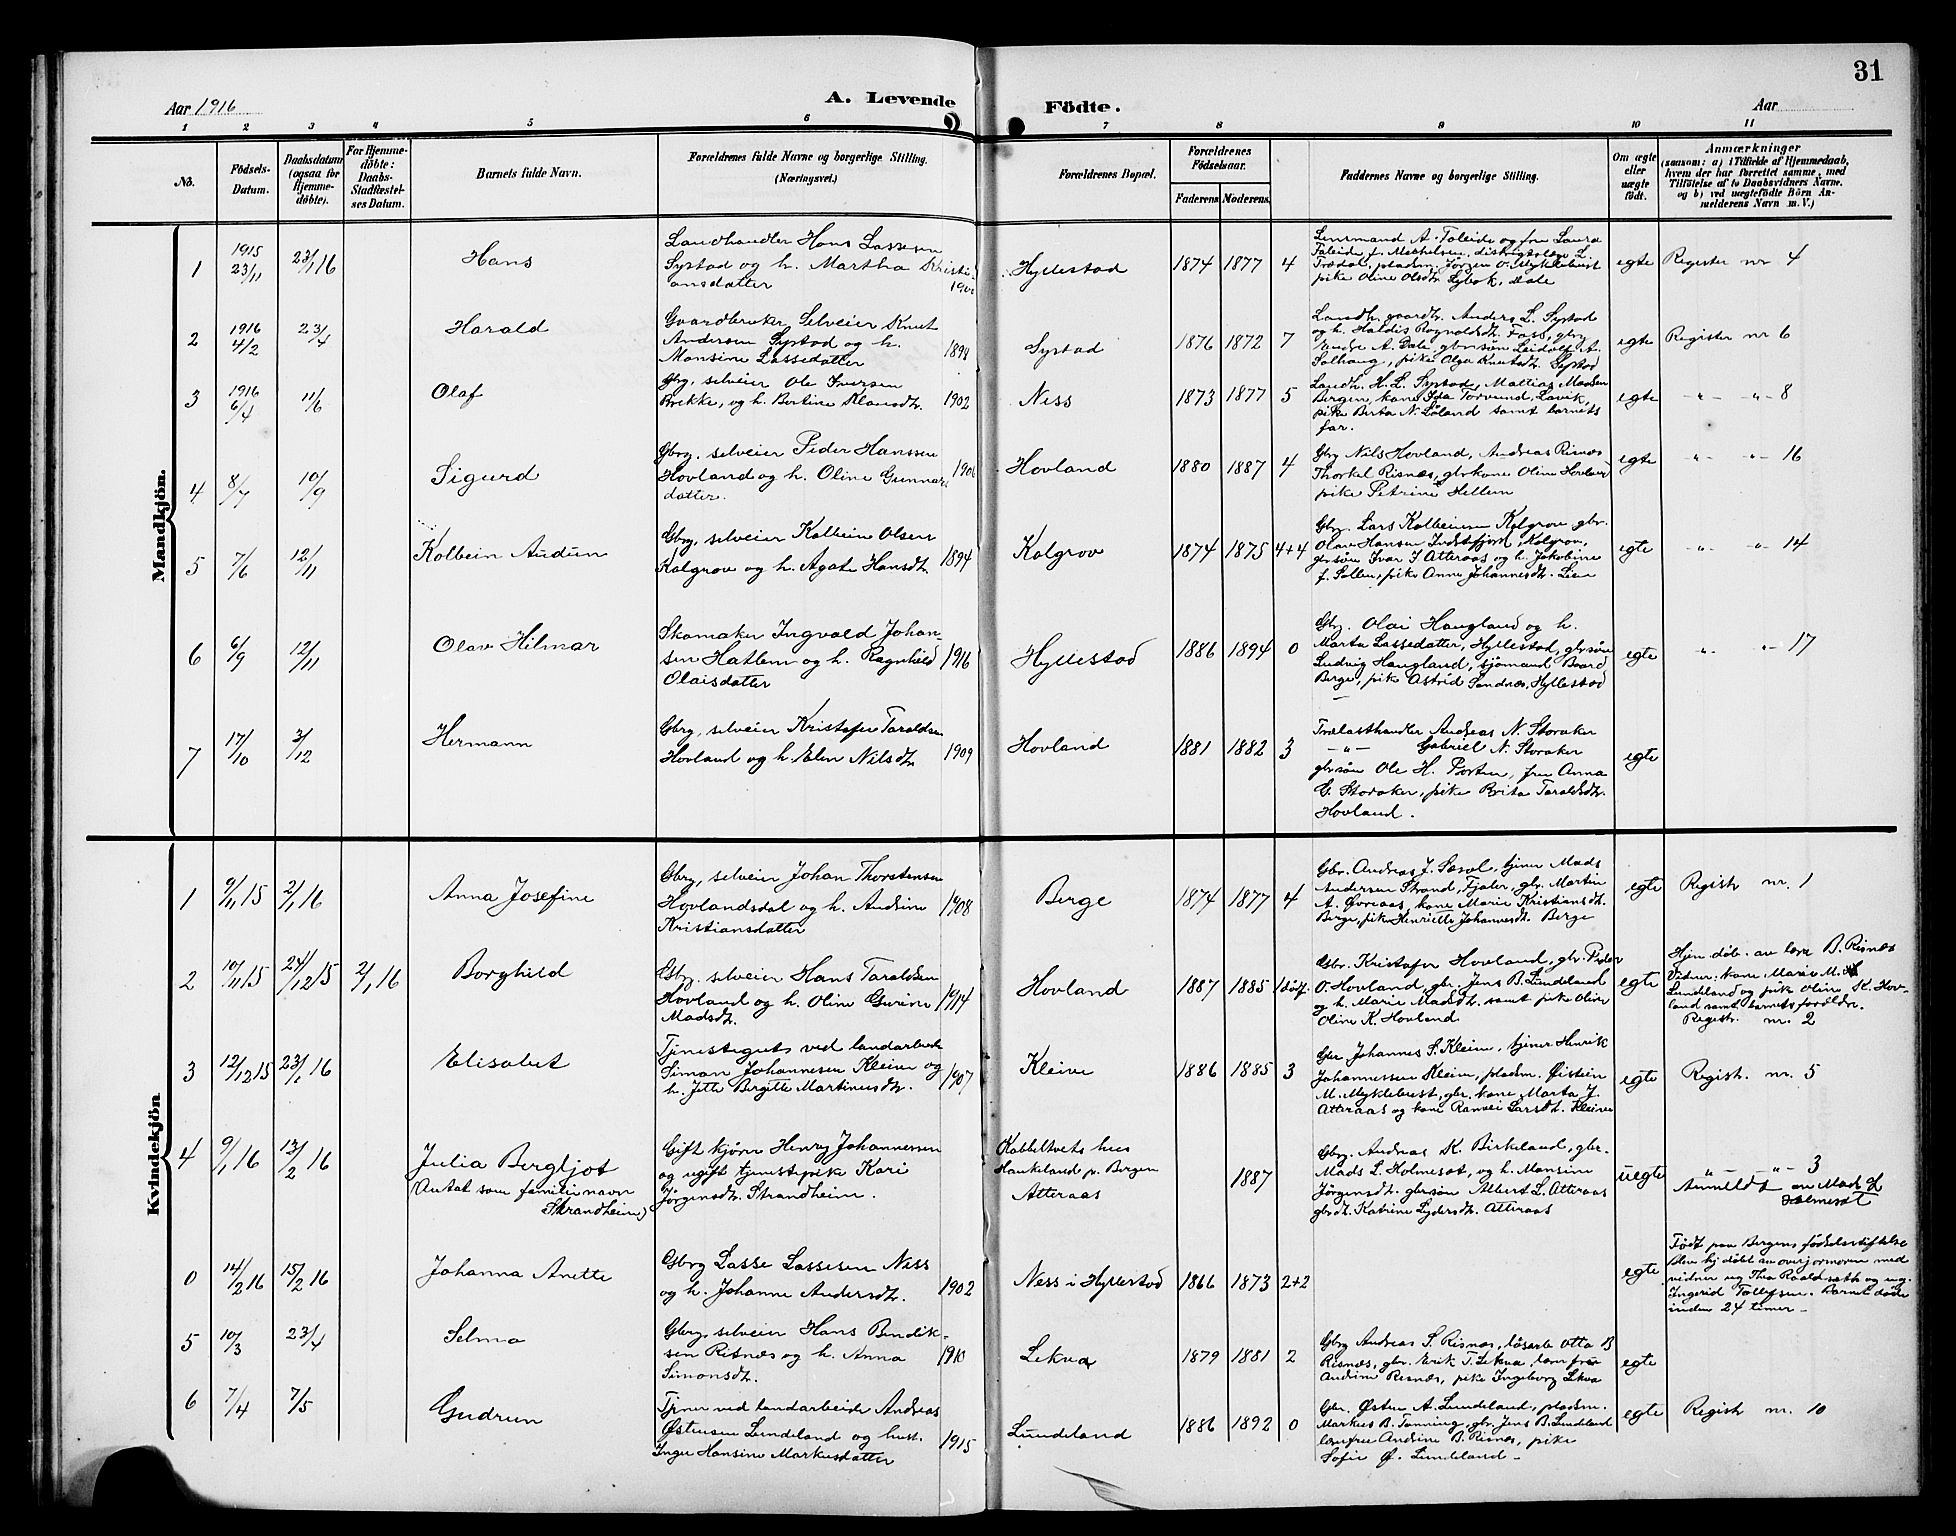 31
Aar 1916
A. Levende
Födte.
Aar
1 2 3 4 5 6 7 8 9 10 11
No.
Födsels-
Datum.
Daabsdatum
(ogsaa for
Hjemme-
döbte).
For Hjemme-
döbte:
Daabs-
Stadfæstel-
ses Datum.
Barnets fulde Navn.
Forældrenes fulde Navne og borgerlige Stilling.
(Næringsvei.)
Forældrenes Bopæl.
Forældrenes
Födselsaar.
Faderens.
Moderens.
Faddernes Navne og borgerlige Stilling.
Om ægte
eller
uægte
födt.
Anmærkninger
(saasom: a) i Tilfælde af Hjemmedaab,
hvem der har forrettet samme, med
Tilföielse af to Daabsvidners Navne.
og b) ved uægtefödte Börn An-
melderens Navn m. V.)
Mandkjön.
1
1915
23/11
23/1 16
Hans
Landhandler Hans Lassesen
Systad og h. Martha Kristi-
ansdatter
Hyllestad
1874 1877 4
Lensmand A. Taleide og fru Laura
Taleide f. Mikkelsen, distriktslæge L.
Trædal, pladsm. Jørgen O. Myklebust
pike Oline Olsdtr Sybok, Dale
egte
Register nr 4
2
1916
4/2
23/4
Harald
Gaardbruker Selveier Knut
Andersen Systad og h.
Monsine Lassedatter
1898
Systad
1876 1872 7
Landh. gaardbr. Anders L. Systad
og h. Haldis Ragnoldsdtr. Foss, gbrg
Endre A. Dale, gbrsøn Leidolf A.
Solhaug, pike Olga Knutsdtr. Systad
egte
Register nr 6
3
1916
6/4
11/6
Olaf
Gbrg. selveier Ole Iversen
Brekke, og h. Bertine Klausdtr.
1902
Ness
1873 1877 5
Landh. H. L. Systad, Mattias Madsen
Bergen, kone Ida Torvund, Lavik,
pike Berta N. Løland samt barnets
far.
egte
-"- -"- 8
4
8/7
10/9
Sigurd
Gbrg. selveier Peder Hanssen
Hovland og h. Oline Gunnars
datter.
1906
Hovland
1880 1887 4
Gbrg Nils Hovland, Andreas Risnæs
Thorkel Risnæs, gbrkone Oline Hovland
pike Petrine Hellem
egte
-"- -"- 16
5
7/6
12/11
Kolbein Audun
Gbrg. selveier Kolbein Olsen
Kolgrov og h. Agate Hansdtr.
1894
Kolgrov
1874 1875 4+4
Gbrg. Lars Kolbeinsen Kolgrov gbr.
Olav Hansen Indrefjord, Kolgrov,
gbrsøn Ivar I Atteraas og h. Jakobine
f. Sollen, pike Anna Johannesdtr. Lien
egte
-"- -"- 14
6
6/9
12/11
Olav Hilmar
Skomaker Ingvald Johan-
sen Hatlem og h. Ragnhild
Olaisdatter
1916
Hyllestad
1886 1894 0
Gbrg. Olai Haugland og h.
Marta Lassedatter, Hyllestad, gbrsøn
Ludvig Haugland, sjömand Baard
Berge, pike Astrid Sandnæs, Hyllestad
egte
-"- -"- 17
7
17/10
3/12
Hermann
Gbrg, selveier Kristofer Taraldsen
Hovland og h. Elen Nilsdtr
1909
Hovland
1881 1882 3
Trælasthandler Andreas N. Storaker
-"- Gabriel N. Storaker
gbrsøn Ole H. Porten, fru Anna
G. Storaker, pike Brita Taraldsdtr.
Hovland.
egte
Kvindekjön
1
9/11 15
2/1 16
Anna Josefine
Gbrg, selveier Johan Thorstensen
Hovlandsdal og h. Andrine
Kristiansdatter
1908
Berge
1874 1877 4
Gbr. Andreas J. Sæsol, tjener Mads
Andersen Strand, Fjaler, gbr. Martin
A. Øvreaas, kone Marie Kristiansdtr.
Berge, pike Henriette Johannesdtr. Berge
egte
Registr nr. 1
2
10/11 15
24/12 15
2/1 16
Borghild
Gbrg. selveier Hans Taraldsen
Hovland og h. Oline Gurine
Madsdtr.
1914
Hovland
1887 1885 1 døf.
Gbr. Kristofer Hovland, gbr. Peder
O. Hovland, gbr. Jens B. Lundeland
og h. Marie Madsdtr. samt pike Oline
Oline K. Hovland
egte
Hjem.døb. av lærer B. Risnæs
Vidner: kone Marie M.
Lundeland og pike Oline K. Hov-
land samt barnets forældre.
Registr. nr. 2
3
12/12 15
23/1 16
Elisabet
Tjenestegut ved landarbeide
Simon Johannesen Kleive og
h. Jette Birgitte Martinusdtr.
1907
Kleive
1886 1885 3
Gbr Johannes S. Kleive, tjener Henrik
Johannessen Kleive, pladsm. Øistein
M. Myklebust, gbr. kone Marta J.
Atteraas og kone Ranvei Larsdtr. Kleive
egte
Registr. nr. 5
4
9/1 16
13/2 16
Julia Bergljot
(Antat som familienavn
Strandheim)
Gift kjører Henry Johannessen
og ugift tjenestepike Kari
Jørgensdtr. Strandheim.
Kobbeltvets hus
Haukeland p. Bergen
Atteraas
1887
Gbrg. Andreas K. Birkeland, gbr.
Mads L. Holmesæt, og h. Monsine
Jørgensdtr. gbrsøn Albert L. Atteraas
gbrdtr. Katrine Lydersdtr. Atteraas
uegte
-"- -"- 3
Anmeldt av Mads L.
Holmesæt
0
14/2 16
15/2 16
Johanna Anette
Gbrg Lasse Lassesen Ness
og h. Johanne Andersdtr.
1902
Ness i Hyllestad
1866 1873 2+2
egte
Født paa Bergens fødselsstiftelse
Blev hj.døbt av overjormoren med
vidner ug. Thea Roaldsæth og ug.
Ingerid Tollefsen. Barnet døde
inden 24 timer -
5
10/3
23/4
Selma
Gbrg. selveier Hans Bendik-
sen Risnæs og h. Anna
Simonsdtr.
1910
Lekva
1879 1881 2
Gbrg Andreas S. Risnæs, løsarb. Otto B
Risnæs, gbr. Erik T. Lekva, lærerfrue
Andrine Risnæs, pike Ingeborg Lekva
egte
6
7/4
7/5
Gudrun
Tjener ved landarbeide Andreas
Østensen Lundeland og hust.
Inga Hansine Markusdatter
1915
Lundeland
1886 1892 0
Gbr. Østen A. Lundeland, pladsm.
Markus B. Tanning, gbr. Jens B. Lundeland
lærerfrue Andrine B. Risnæs, pike
Sofie Ø. Lundeland -
egte
Registr nr. 10